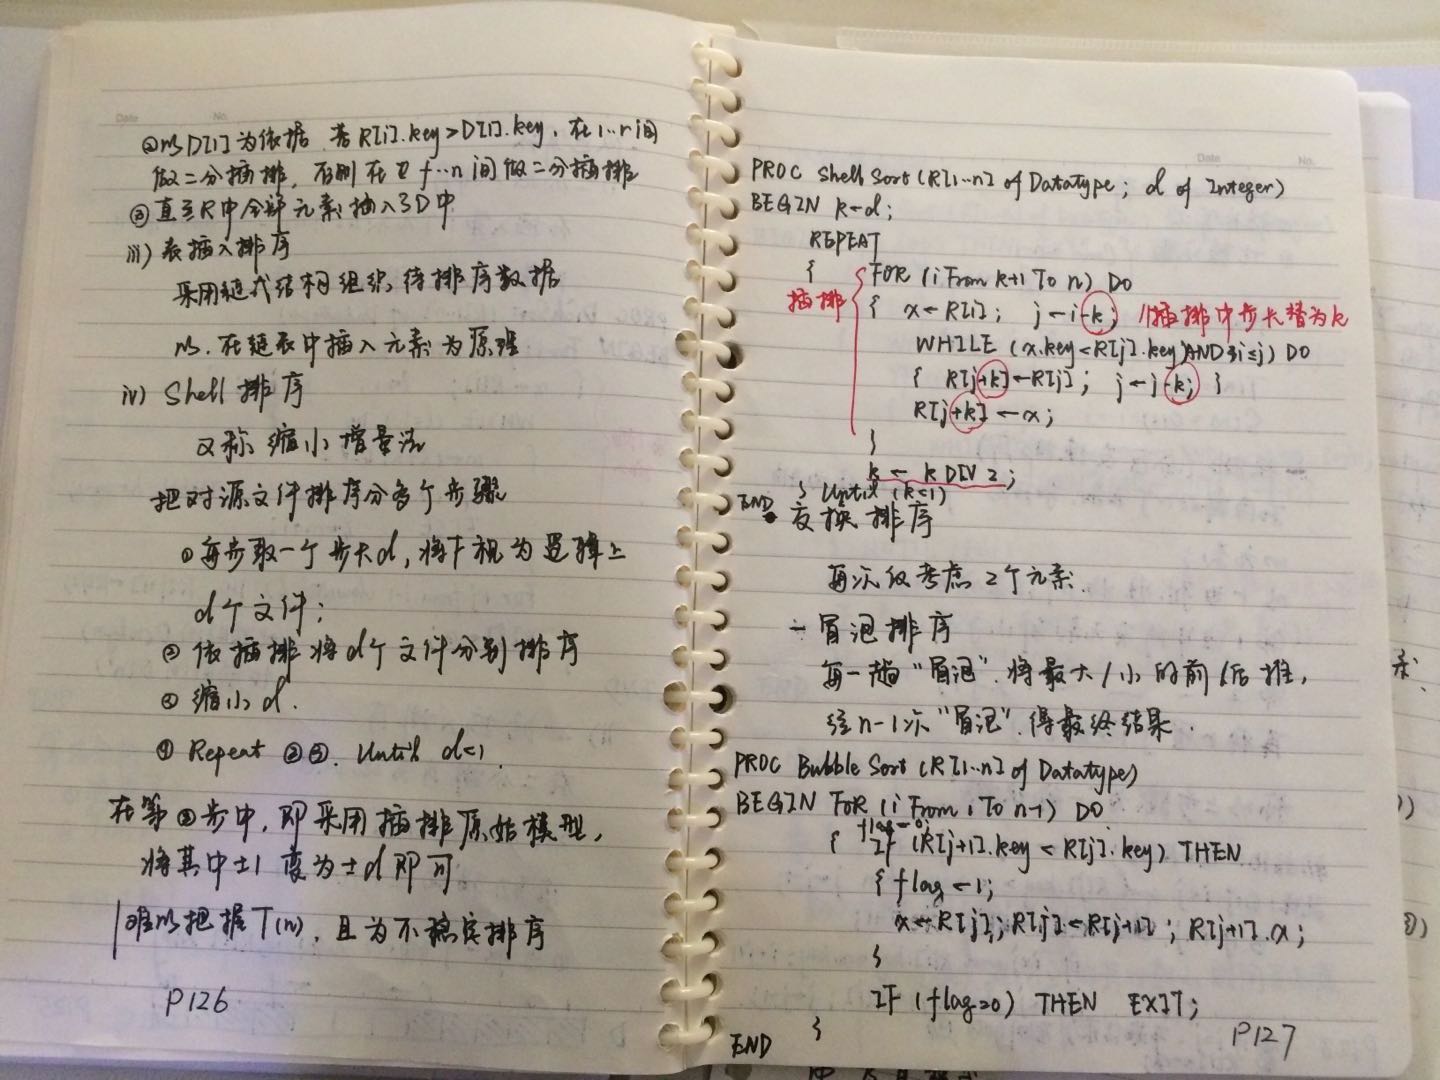 ②以D[1]为依据,若R[i].key>D[1].key,在1…r间
做二分插排,否则在 f…n间做二分插排
③直至R中全部元素插入了D中
iii)表插入排序
采用链式结构组织待排序数据
以.在链表中插入元素为原理
iv) Shell 排序
又称缩小增量法
把对源文件排序分多个步骤
①每步取一个步长d,将F视为逻辑上
d个文件;
②依插排将d个文件分别排序
③缩小d.
④ Repeat ②③. Until d=1.
在第②步中,即采用插排原始模型,
将其中±1 变为±d即可
难以把握T(n),且为不稳定排序
P126
Date No.
PROC ShellSort(R[1..n] of DataType; d of Integer)
BEGIN k←d;
REPEAT
{ FOR (i From k+1 To n) DO
插排 { x←R[i]; j←i-k; //插排中步长替为k
WHILE (x.key<R[j].key)AND i≤j) DO
{ R[j+k]←R[j]; j←j-k; }
R[j+k]←x;
}
k ← k DIV 2;
} Until (k=1)
END
• 交换排序
每次仅考虑2个元素.
- 冒泡排序
每一趟"冒泡".将最大/小的前/后推,
经n-1次"冒泡".得最终结果.
PROC BubbleSort(R[1..n] of Datatype)
BEGIN FOR (i From 1 To n-1) DO
flag=0;
{ IF (R[j+1].key < R[j].key) THEN
{ flag←1;
x←R[j]; R[j]←R[j+1]; R[j+1].x;
}
IF (flag=0) THEN EXIT;
}
END
P127